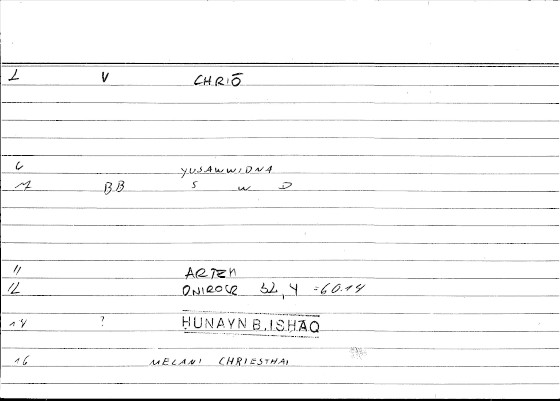 1 V CHRIŌ
6 YUSAWWIDNA
7 BB S W D
11 ARTEM
12 ONIROCR 52, 4 =60.14
14 ? HUNAYN B. ISHAQ
16 MELANI CHRIESTHAI